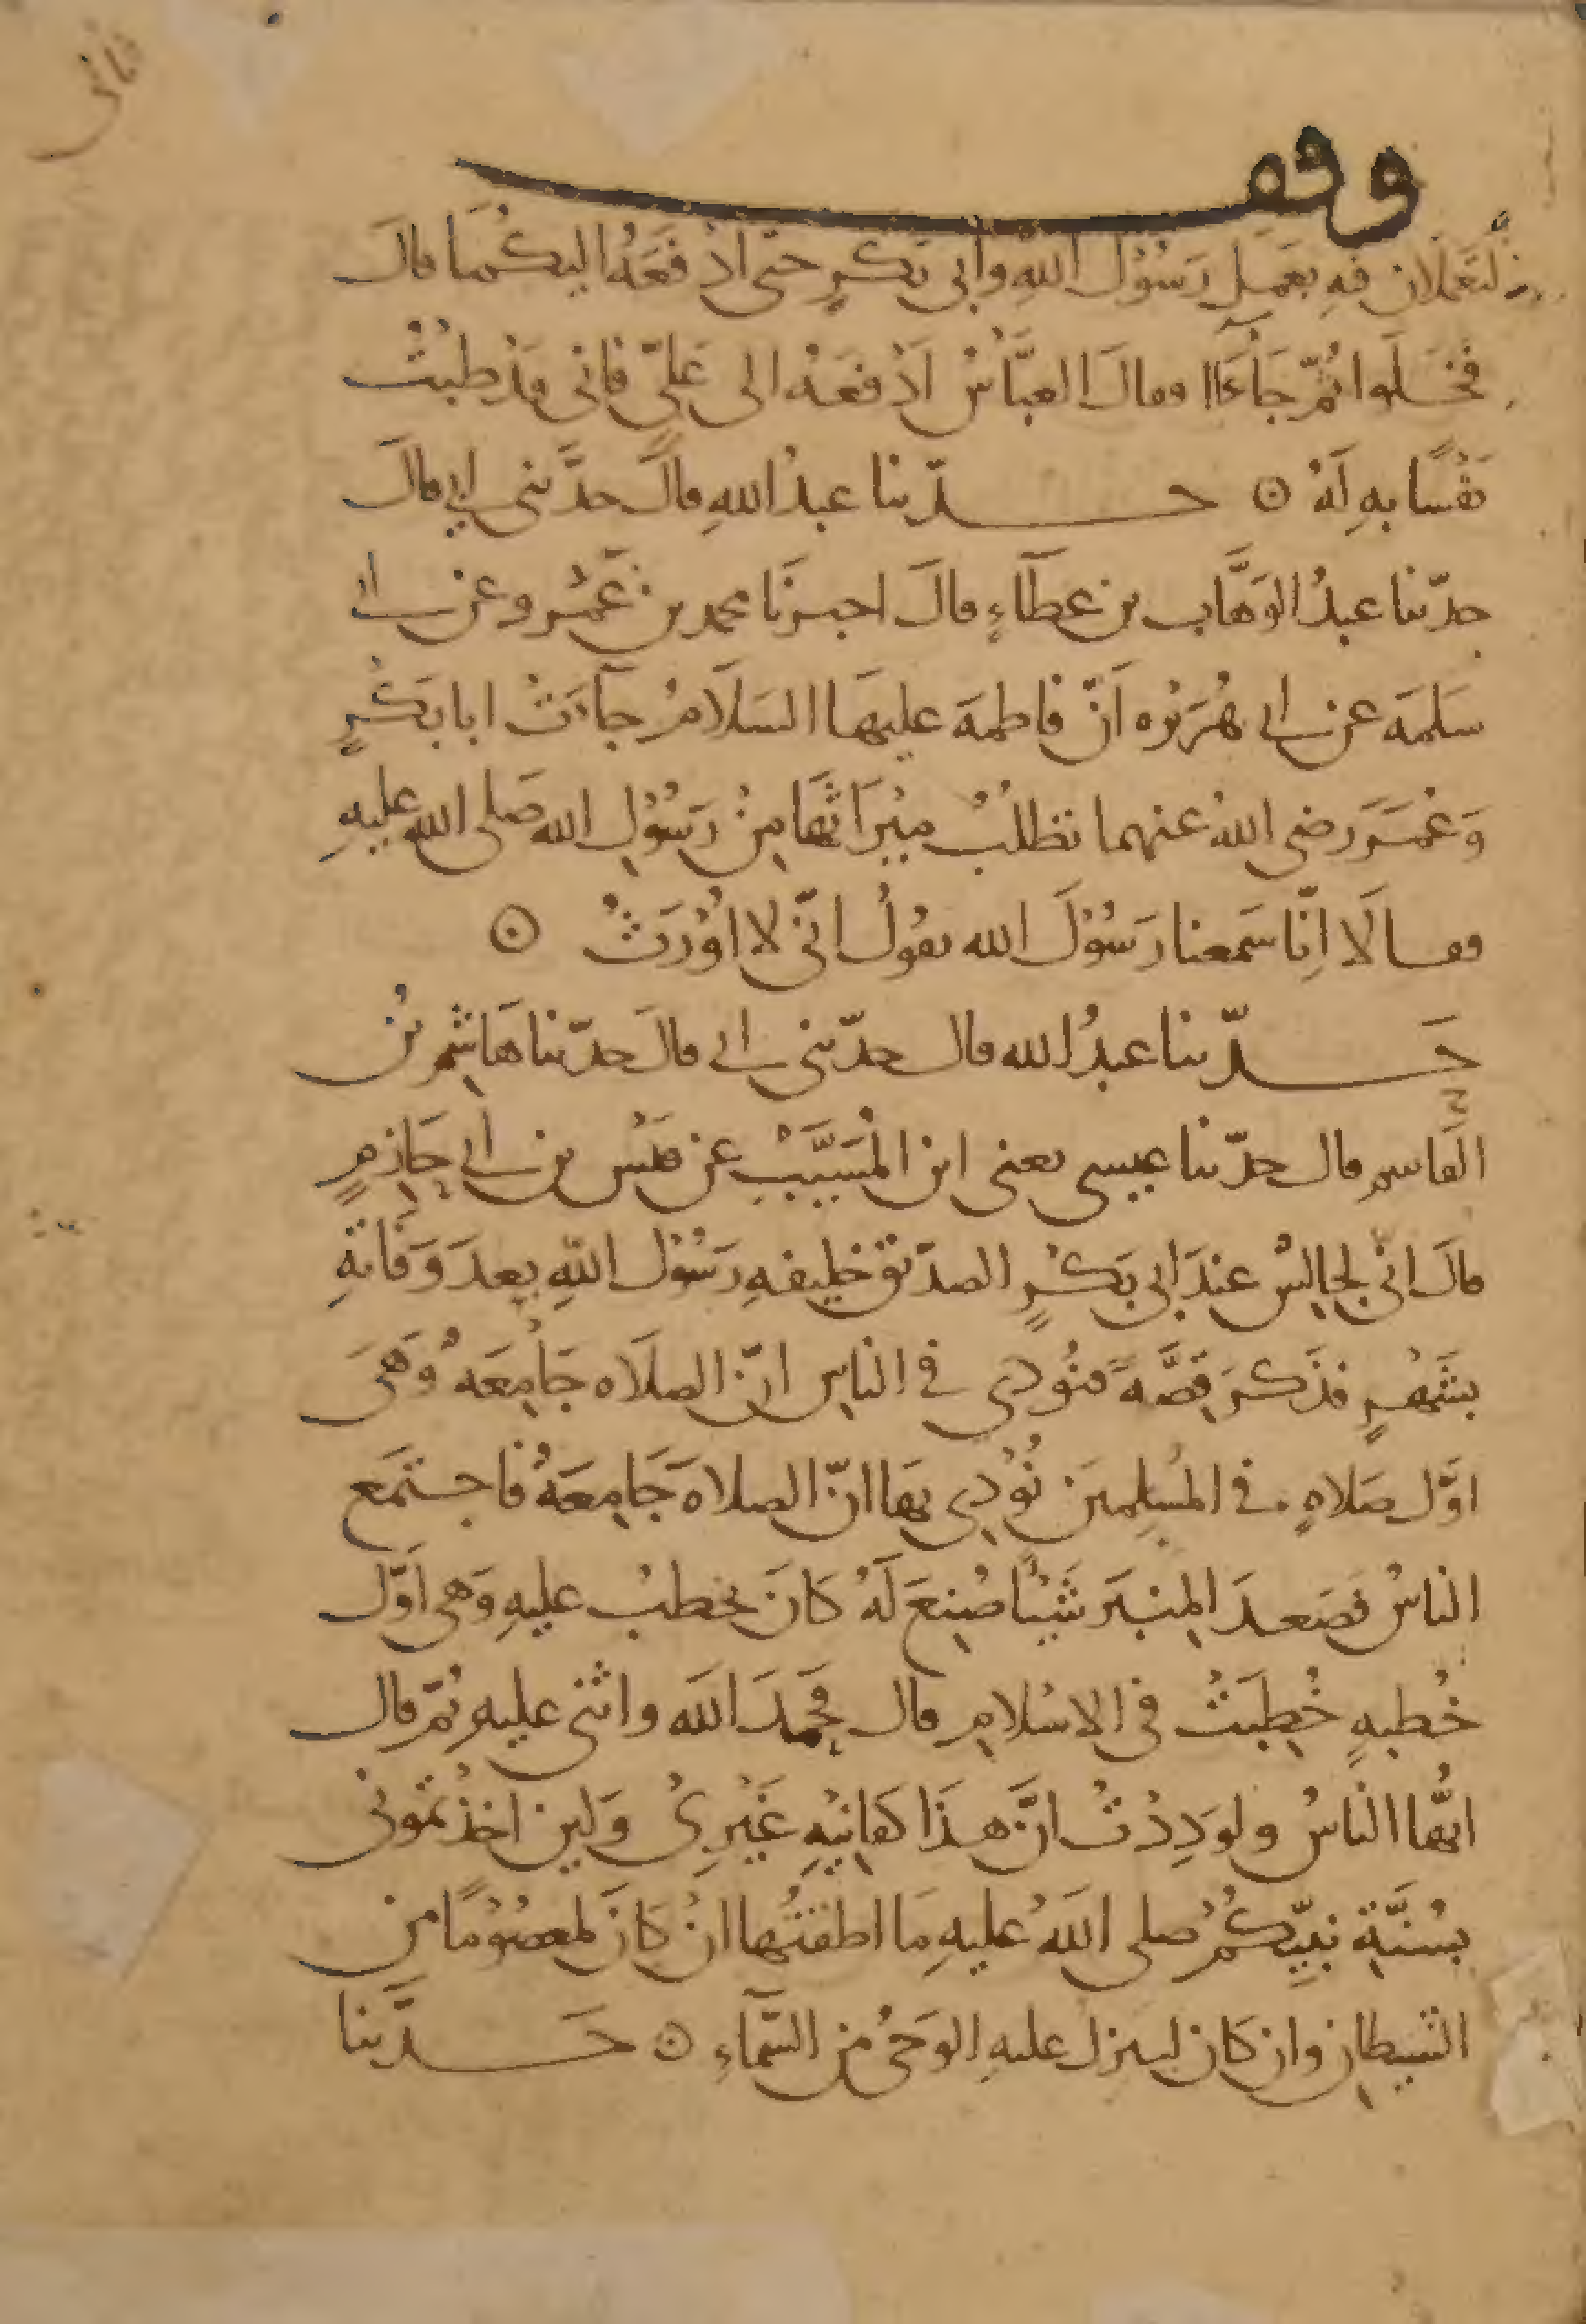 ثانى
وقف
لتعملان فيه بعمل رَسُوْل اللهِ وابى بَكرٍ حتى اَدْفَعَهُ اليكُمَا قالَ
فَخَلَوا ثُمّ جَاءَا وقالَ العبَّاسُ اَدْفعْهُ الى عَليّ فانى قَدْ طبْتُ
نَفْسًا بهِ لَهُ ⊙ حدّثنا عبدُ اللهِ قالَ حدَّثنى ابى قالَ
حدّثنا عبدُ الوَهَّاب بن عطَآءٍ قالَ اخبرنَا محمد بن عَمْرو عن ابى
سَلمَه عن ابى هُرَيْرَه اَنّ فاطمَه عليهَا السَلَامُ جآءَتْ ابا بَكْرٍ
وَعُمَرَ رضى اللهُ عنهما تطلُبُ مِيْرَاثهَا مِنْ رَسُوْلِ الله صَلى الله عليهِ
فقالَا اِنّا سَمعنا رَسُوْلَ الله يقولُ انّى لا اُوْرَثُ ⊙
حَدّثنا عبدُ الله قال حدّثنى ابى قالَ حدّثنا هَاشِم بْنُ
القَاسم قال حدّثنا عيسى يعنى ابن المُسَيَّبْ عن قَيْس بن ابى حَازمٍ
قالَ انّى لجالِسٌ عندَ ابى بَكْرٍ الصدّيق خليفهِ رَسُوْل اللهِ بعدَ وَفَاتهِ
بشَهْرٍ فذَكرَ قصَّهً فنُودِى فى الناسِ انّ الصلَاه جَامِعَهٌ وَهىَ
اوَّل صَلاهٍ فى المُسلِمينَ نُوْدِى بهَا انّ الصلاهَ جَامِعَهٌ فاجتمَع
الناسُ فصَعدَ المِنبَر شَيْئًا صُنِعَ لَهُ كانَ يخطبُ عليهِ وَهى اوَّل
خُطبهٍ خُطِبَتْ فى الاسْلامِ قال فحَمِدَ اللهَ واثنى عليهِ ثمّ قال
ايُّها الناسُ ولوَدِدْتُ انَّ هذَا كفانيْهِ غَيْرِىْ وَلَين اخَذْتمُونى
بسُنَّةِ نبيّكُمْ صلى اللهُ عليهِ مَا اطقتُها انْ كانَ لمعصُوْمًا من
الشيطانِ وان كان لينزل عليهِ الوَحىُ من السَّمآءِ ⊙ حَدَّثنا